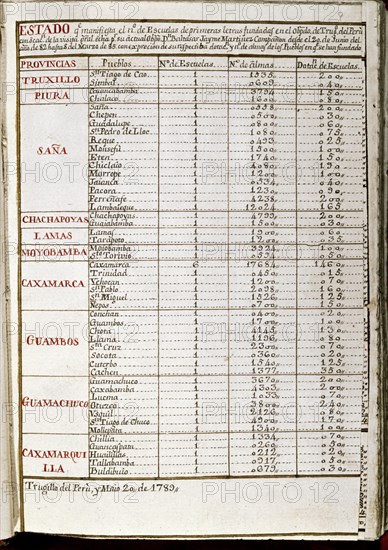 ESTADO q.e manifiesta el n.o de Escuelas de primeras letras fundadas en el Obpdo. de Trux.o del Perù
con de la visita g̃ral. echa p.r su actual Obpo. D.n Balthasar Jayme Martinez Compañon desde el 20 de Junio del
año de 82 hasta 8 de Marzo de 85 con expresion de su respectiva dotac.n, y n.o de almas de los Pueblos en q.e se han fundado
PROVINCIAS Pueblos N.o de Escuelas. N.o de Almas. Dotac.n de Escuelas.
TRUXILLO S.tiago de Cao 1 1535 200
Simbal 1 0609 040
PIURA Guancabamba 1 3794 150
Chalaco 1 1600 080
SAÑA Saña 1 0558 200
Chepen 1 0500 030
Guadalupe 1 0800 060
S.n Pedro de Lloc 1 1080 075
Reque 1 0493 025
Monsefù 1 1500 100
Eten 1 1740 150
Chiclaio 1 4080 190
Morrope 1 1200 100
Jaianca 1 0534 040
Pacora 1 1230 090
Ferreñafe 1 4238 200
Lambaieque 1 12024 165
CHACHAPOYAS Chachapoyas 1 4799 200
Guaiabamba 1 1500 030
LAMAS Lamas 1 1900 060
Tarapoto 1 1200 035
MOYOBAMBA Moyobamba 1 3324 100
S.to Torivio 1 0534 050
CAXAMARCA Caxamarca 6 17684 1460
Trinidad 1 0450 015
Ychocan 1 1200 070
S.n Pablo 1 2098 160
S.n Miguel 1 1526 125
Nepos 1 0700 150
GUAMBOS Conchan 1 0400 020
Guambos 1 1700 100
Chota 1 4145 130
Llama 1 1196 080
S.ta Cruz 1 2300 070
Socota 1 0360 020
Cuterbo 1 1540 125
Cachen 1 1377 350
GUAMACHUCO Guamachuco 1 3670 200
Caxabamba 1 4303 200
Lucma 1 1033 070
Otuzco 1 3800 240
Vsquil 1 2126 080
S.tiago de Chuco 1 4900 170
Mollepata 1 1340 100
CAXAMARQUI
LLA
Chillia 1 1334 070
Guancaspata 1 0260 050
Huaiillas 1 0212 020
Tallabamba 1 0917 050
Buldibuio 1 0679 030
Trugillo del Perù, y Maio 20 de 1789